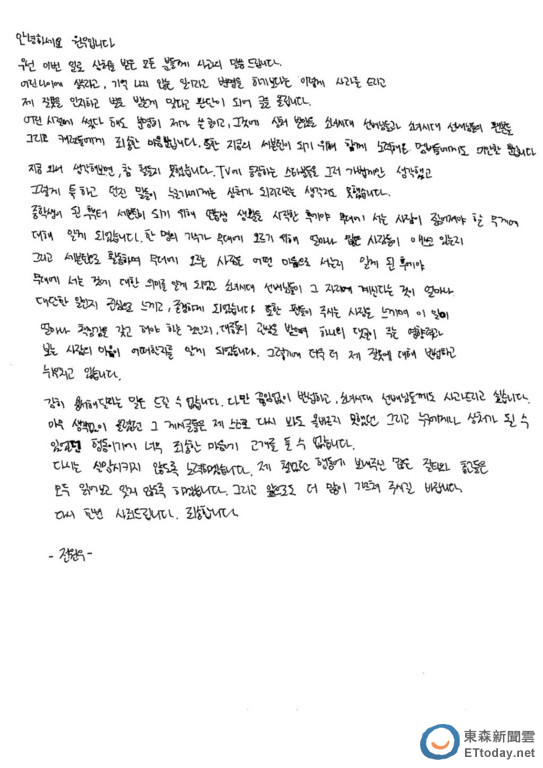 안녕하세요 원우입니다.
우선 이번 일로 상처를 받은 모든 분들께 사과의 말씀 드립니다.
어린나이에 생각없고, 기억 나지 않는 일이라고 변명을 하기보다는 이렇게 사과를 드리고
제 잘못을 인지하고 벌을 받는게 맞다고 판단이 되어 글을 올립니다.
어린 시절에 썼다 해도 분명히 제가 쓴 글이고, 그것에 상처 받았을 소녀시대 선배님들과 소녀시대 선배님들의 팬분들
그리고 캐럿들에게 죄송한 마음뿐입니다. 또한 지금의 세븐틴이 되기 위해 함께 노력해온 멤버들에게도 미안한 뿐입니다
지금 와서 생각해보면, 참 철들지 못했습니다. TV에 등장하는 스타분들을 그저 가볍게만 생각했고
그렇게 툭 하고 던진 말들이 누군가에게는 상처가 되리라는 생각도 못했습니다.
중학생이 된 후부터 세븐틴이 되기 위해 연습생 생활을 시작한 후에야 무대에 서는 사람이 짊어져야 할 무게에
대해 알게 되었습니다. 한 명의 가수가 무대에 오르기 위해 얼마나 많은 사람들이 애쓰고 있는지
그리고 세븐틴으로 활동하며 무대에 오르는 사람은 어떤 마음으로 서는지 알게 된 후에야
무대에 서는 것에 대한 의미를 알게 되었고 소녀시대 선배님들이 그 자리에 계신다는 것이 얼마나
대단한 일인지 관심을 느끼고, 존경하게 되었습니다. 또한 팬들이 주시는 사랑을 느끼며 이 일이
얼마나 책임감을 갖고 해야 하는 것인지, 대중들의 관심을 받으며 하나의 댓글이 주는 영향력과
보는 사람의 마음이 어떠한지를 알게 되었습니다. 그렇기에 더욱 더 제 잘못에 대해 반성하고
뉘우치고 있습니다.
감히 용서해달라는 말은 드릴 수 없습니다. 다만 끊임없이 반성하고, 소녀시대 선배님들께도 사과드리고 싶습니다.
아무 생각없이 올렸었던 그 게시글들은 제 스스로 다시 봐도 올바르지 못했었던 그리고 누구에게나 상처가 될 수
있었던 행동이기에 너무 죄송한 마음에 고개를 들 수 없습니다.
다시는 실망시키지 않도록 노력하겠습니다. 제 철없었던 행동에 보내주신 많은 질타와 충고들은
모두 읽어보고 잊지 않도록 하겠습니다. 그리고 앞으로도 더 많이 가르쳐 주시길 바랍니다.
다시 한번 사죄드립니다. 죄송합니다.
- 전원우 -
東森新聞雲
ETtoday.net